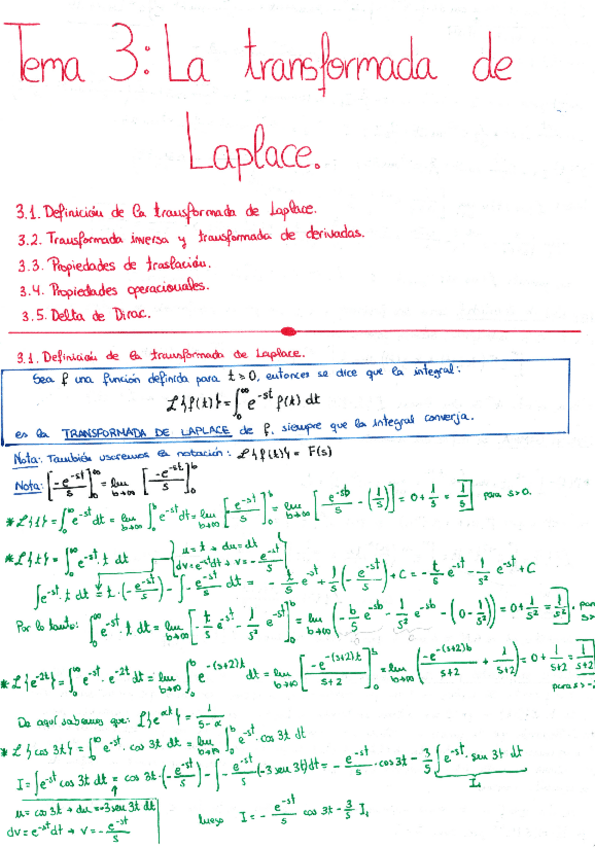 Tema 3: La transformada de
Laplace.
3.1. Definición de la transformada de Laplace.
3.2. Transformada inversa y transformada de derivadas.
3.3. Propiedades de traslación.
3.4. Propiedades operacionales.
3.5. Delta de Dirac.
3.1. Definición de la transformada de Laplace.
Sea f una función definida para t ≥ 0, entonces se dice que la integral:
ℒ{f(t)} = ∫₀^∞ e^{-st} f(t) dt
es la TRANSFORMADA DE LAPLACE de f, siempre que la integral converja.
Nota: También usaremos la notación: ℒ{f(t)} = F(s)
Nota: [-e^{-st}/s]₀^∞ = lim_{b→∞} [-e^{-st}/s]₀^b
* ℒ{1} = ∫₀^∞ e^{-st} dt = lim_{b→∞} ∫₀^b e^{-st} dt = lim_{b→∞} [-e^{-st}/s]₀^b = lim_{b→∞} [-e^{-sb}/s - (-1/s)] = 0 + 1/s = 1/s para s>0.
* ℒ{t} = ∫₀^∞ e^{-st} · t dt
u = t → du = dt
dv = e^{-st} dt → v = -e^{-st}/s
∫ e^{-st} · t dt = t · (-e^{-st}/s) - ∫ -e^{-st}/s dt = -t/s e^{-st} + 1/s (-e^{-st}/s) + C = -t/s e^{-st} - 1/s² e^{-st} + C
Por lo tanto: ∫₀^∞ e^{-st} · t dt = lim_{b→∞} [-t/s e^{-st} - 1/s² e^{-st}]₀^b = lim_{b→∞} (-b/s e^{-sb} - 1/s² e^{-sb} - (0 - 1/s²)) = 0 + 1/s² = 1/s², par s>
* ℒ{e^{-2t}} = ∫₀^∞ e^{-st} · e^{-2t} dt = lim_{b→∞} ∫₀^b e^{-(s+2)t} dt = lim_{b→∞} [-e^{-(s+2)t}/s+2]₀^b = lim_{b→∞} (-e^{-(s+2)b}/s+2 + 1/s+2) = 0 + 1/s+2 = 1/s+2
para s>-
De aquí sabemos que: ℒ{e^{αt}} = 1/s-α
* ℒ{cos 3t} = ∫₀^∞ e^{-st} · cos 3t dt = lim_{b→∞} ∫₀^b e^{-st} · cos 3t dt
I = ∫ e^{-st} cos 3t dt = cos 3t · (-e^{-st}/s) - ∫ -e^{-st}/s (-3 sen 3t) dt = -e^{-st}/s · cos 3t - 3/s ∫ e^{-st} · sen 3t dt
I₁
u = cos 3t → du = -3 sen 3t dt
dv = e^{-st} dt → v = -e^{-st}/s
luego I = -e^{-st}/s cos 3t - 3/s I₁